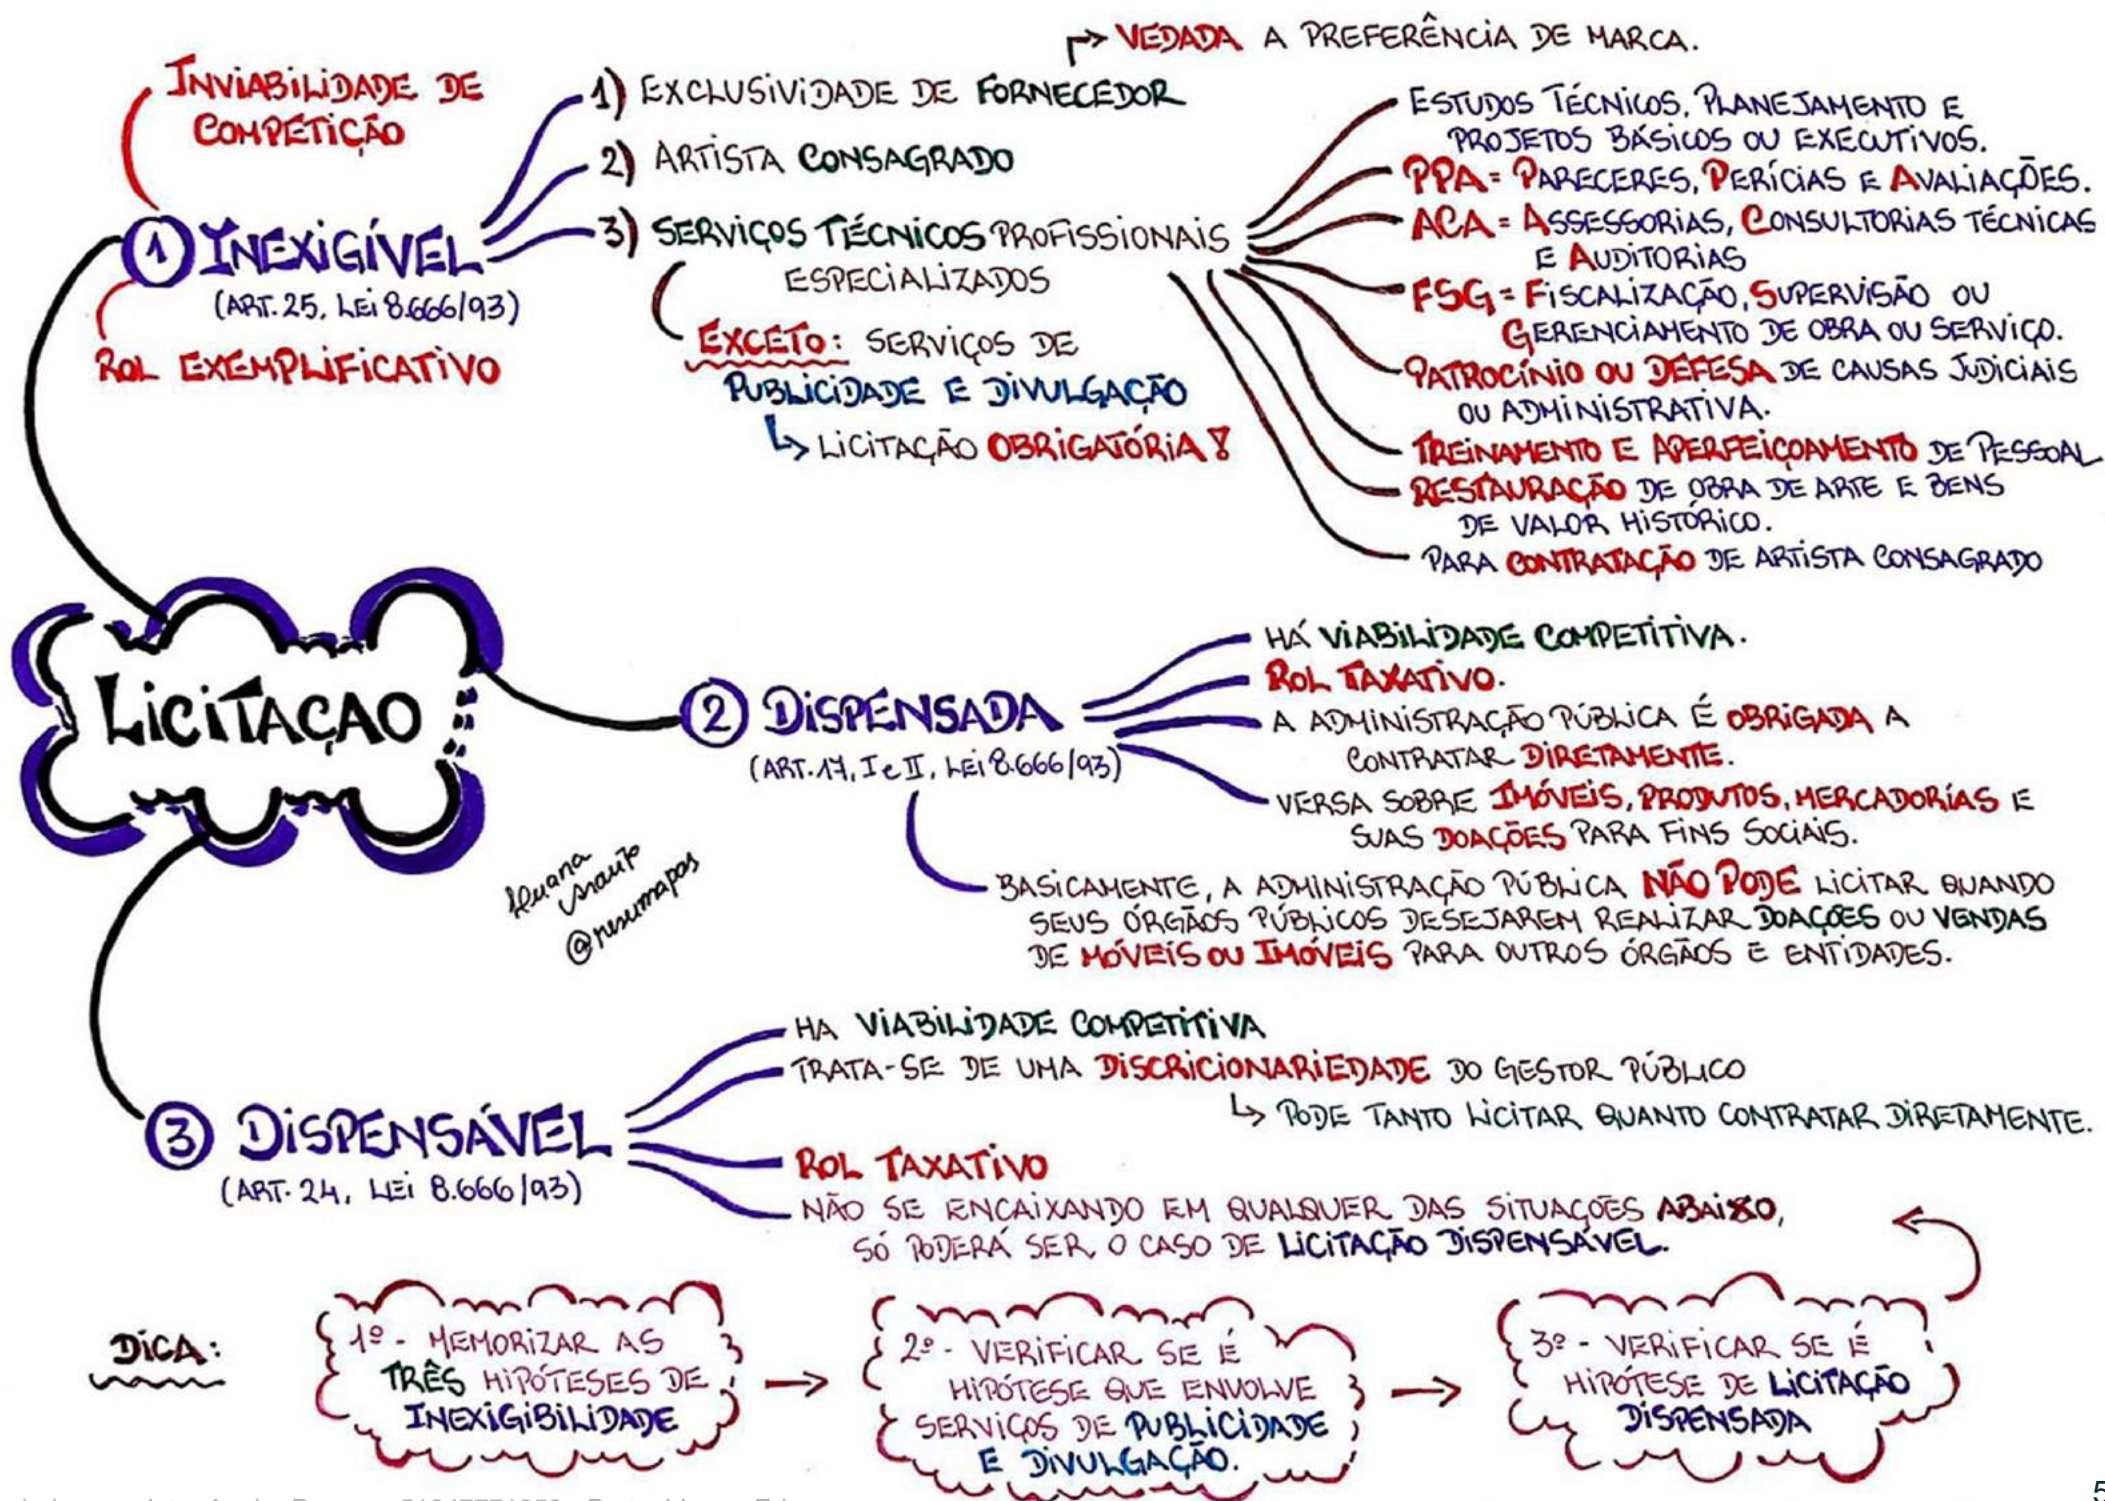 INVIABILIDADE DE
COMPETIÇÃO
1 INEXIGÍVEL
(ART. 25, LEI 8.666/93)
ROL EXEMPLIFICATIVO
VEDADA A PREFERÊNCIA DE MARCA.
1) EXCLUSIVIDADE DE FORNECEDOR
2) ARTISTA CONSAGRADO
3) SERVIÇOS TÉCNICOS PROFISSIONAIS
ESPECIALIZADOS
EXCETO: SERVIÇOS DE
PUBLICIDADE E DIVULGAÇÃO
LICITAÇÃO OBRIGATÓRIA!
ESTUDOS TÉCNICOS, PLANEJAMENTO E
PROJETOS BÁSICOS OU EXECUTIVOS.
PPA = PARECERES, PERÍCIAS E AVALIAÇÕES.
ACA = ASSESSORIAS, CONSULTORIAS TÉCNICAS
E AUDITORIAS
FSG = FISCALIZAÇÃO, SUPERVISÃO OU
GERENCIAMENTO DE OBRA OU SERVIÇO.
PATROCÍNIO OU DEFESA DE CAUSAS JUDICIAIS
OU ADMINISTRATIVA.
TREINAMENTO E APERFEIÇOAMENTO DE PESSOAL
RESTAURAÇÃO DE OBRA DE ARTE E BENS
DE VALOR HISTÓRICO.
PARA CONTRATAÇÃO DE ARTISTA CONSAGRADO
LICITAÇAO
2 DISPENSADA
(ART. 17, I e II, LEI 8.666/93)
HÁ VIABILIDADE COMPETITIVA.
ROL TAXATIVO.
A ADMINISTRAÇÃO PÚBLICA É OBRIGADA A
CONTRATAR DIRETAMENTE.
VERSA SOBRE IMÓVEIS, PRODUTOS, MERCADORÍAS E
SUAS DOAÇÕES PARA FINS SOCIAIS.
BASICAMENTE, A ADMINISTRAÇÃO PÚBLICA NÃO PODE LICITAR QUANDO
SEUS ÓRGÃOS PÚBLICOS DESEJAREM REALIZAR DOAÇÕES OU VENDAS
DE MÓVEIS OU IMÓVEIS PARA OUTROS ÓRGÃOS E ENTIDADES.
@resumapas
3 DISPENSÁVEL
(ART. 24, LEI 8.666/93)
HA VIABILIDADE COMPETITIVA
TRATA-SE DE UMA DISCRICIONARIEDADE DO GESTOR PÚBLICO
PODE TANTO LICITAR QUANTO CONTRATAR DIRETAMENTE.
ROL TAXATIVO
NÃO SE ENCAIXANDO EM QUALQUER DAS SITUAÇÕES ABAIXO,
SÓ PODERÁ SER O CASO DE LICITAÇÃO DISPENSÁVEL.
DICA:
1º - MEMORIZAR AS
TRÊS HIPÓTESES DE
INEXIGIBILIDADE
2º - VERIFICAR SE É
HIPÓTESE QUE ENVOLVE
SERVIÇOS DE PUBLICIDADE
E DIVULGAÇÃO.
3º - VERIFICAR SE É
HIPÓTESE DE LICITAÇÃO
DISPENSADA
5